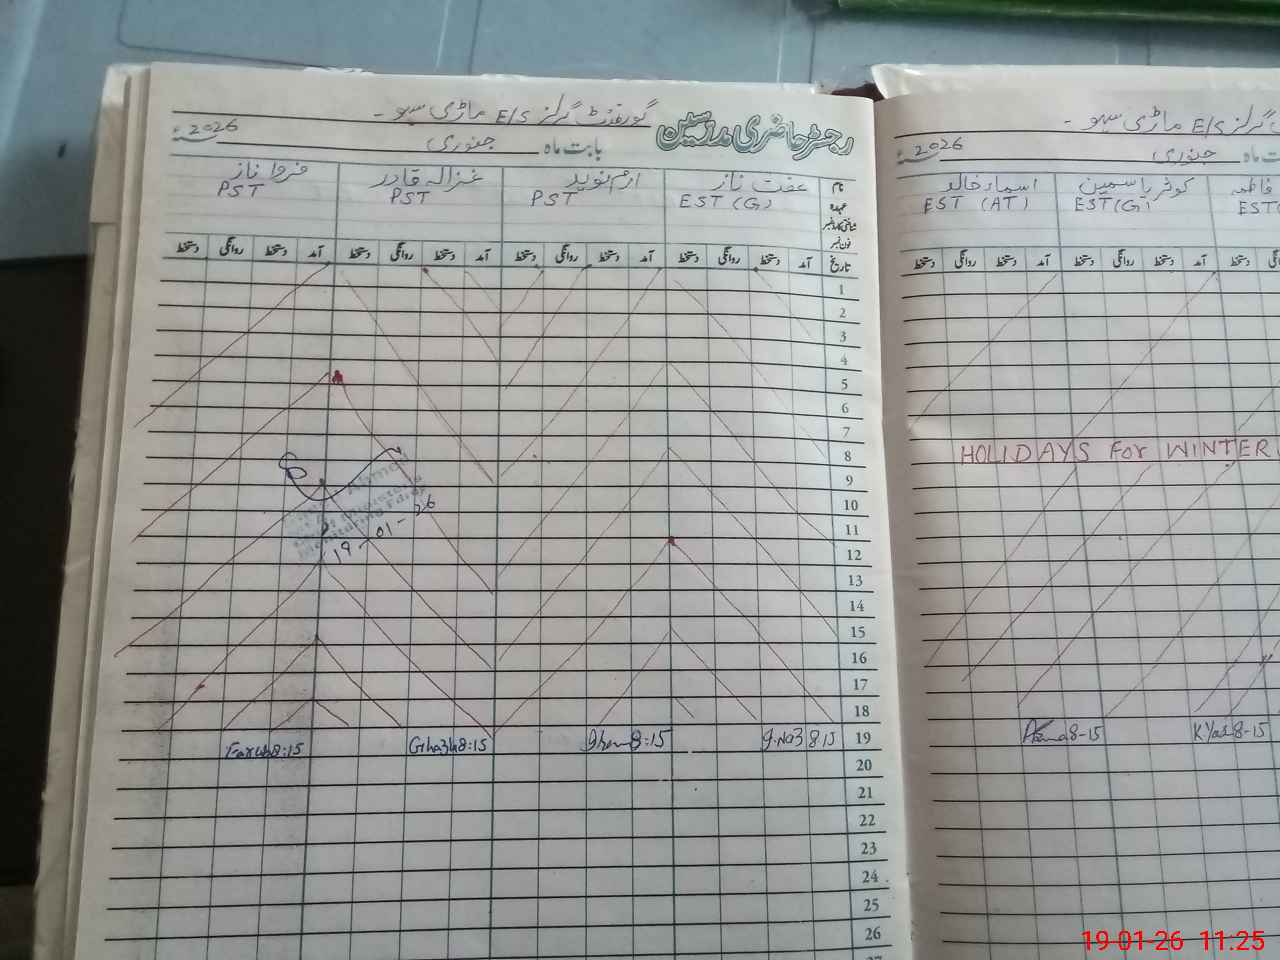 رجسٹر حاضری مدرسین گورنمنٹ گرلز E/S ماڑی سہو -
بابت ماہ جنوری 2026ء
نام عفت ناز ارم نوید غزالہ قادر فروا ناز
عہدہ EST (G) PST PST PST
شناختی کارڈ نمبر
فون نمبر
تاریخ آمد دستخط روانگی دستخط آمد دستخط روانگی دستخط آمد دستخط روانگی دستخط آمد دستخط روانگی دستخط
1
2
3
4
5
6
7
8
9
10
11
12
13
14
15
16
17
18
19 8:15 8:15 8:15 Farwa 8:15
20
21
22
23
24
25
26
27
19-01-26
گرلز E/S ماڑی سہو -
ماہ جنوری 2026ء
فاطمہ کوثر یاسمین اسماء خالد
EST EST (G) EST (AT)
روانگی دستخط آمد دستخط روانگی دستخط آمد دستخط روانگی دستخط
HOLIDAYS For WINTER
8-15 8-15
19-01-26 11:25